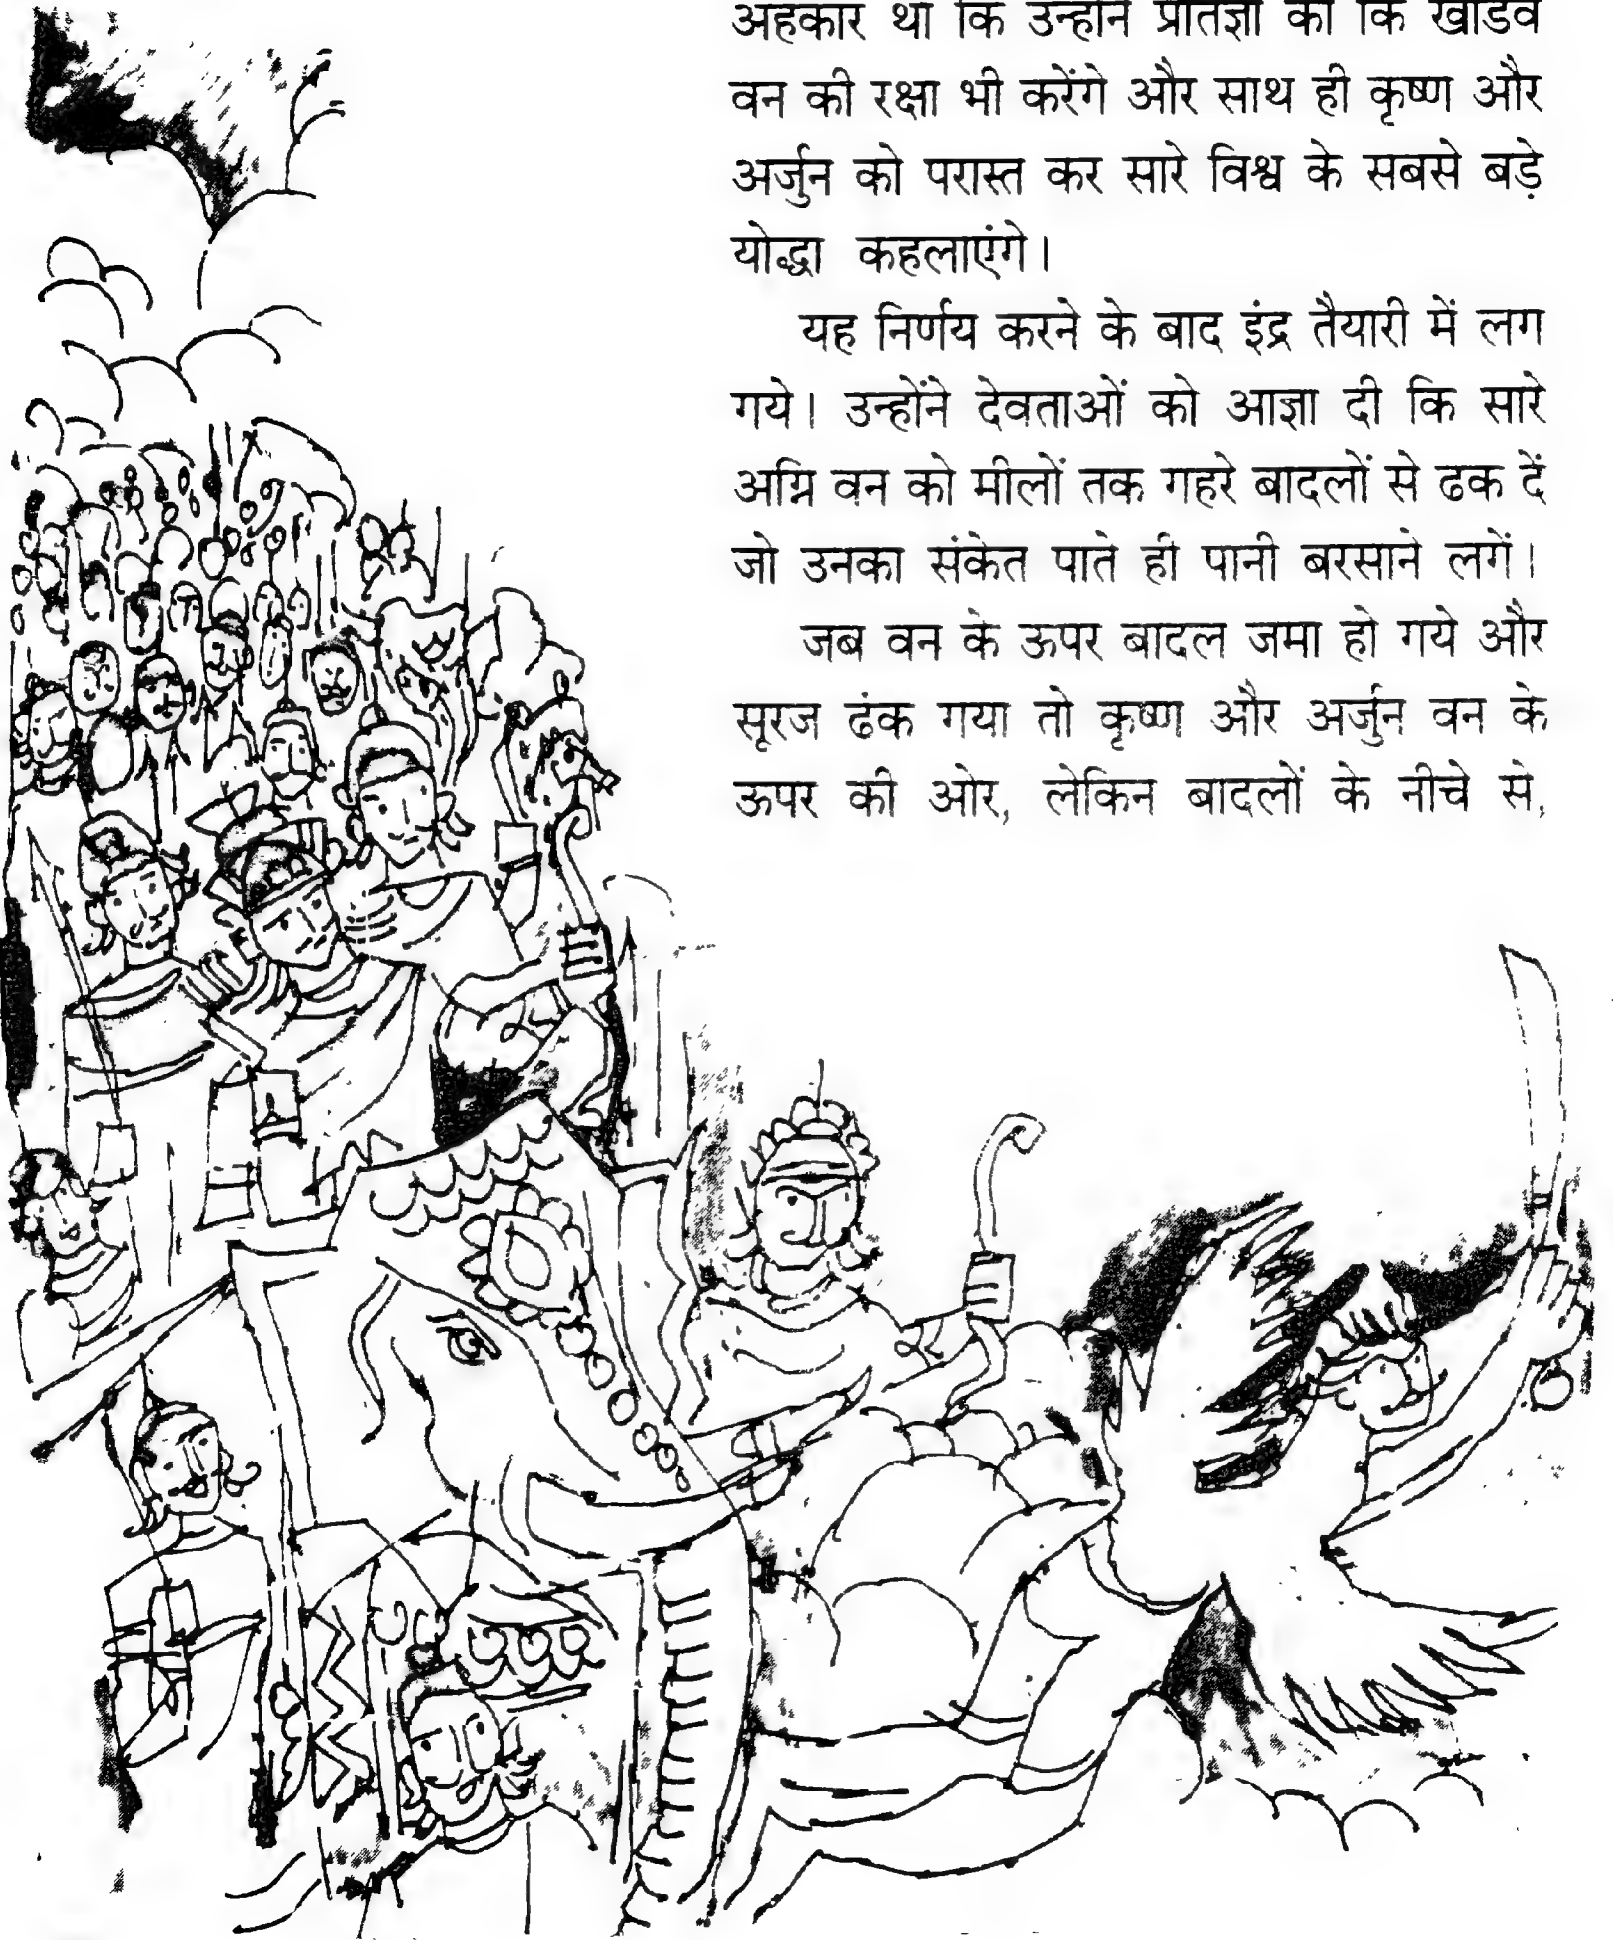 अहंकार था कि उन्होंने प्रतिज्ञा की कि खांडव
वन की रक्षा भी करेंगे और साथ ही कृष्ण और
अर्जुन को परास्त कर सारे विश्व के सबसे बड़े
योद्धा कहलाएंगे।
यह निर्णय करने के बाद इंद्र तैयारी में लग
गये। उन्होंने देवताओं को आज्ञा दी कि सारे
अग्नि वन को मीलों तक गहरे बादलों से ढक दें
जो उनका संकेत पाते ही पानी बरसाने लगें।
जब वन के ऊपर बादल जमा हो गये और
सूरज ढंक गया तो कृष्ण और अर्जुन वन के
ऊपर की ओर, लेकिन बादलों के नीचे से,